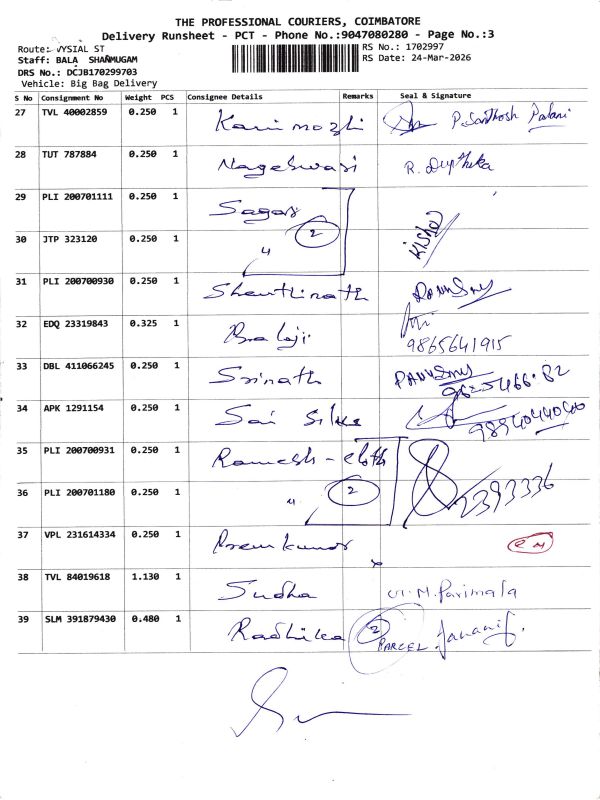 THE PROFESSIONAL COURIERS, COIMBATORE
Delivery Runsheet - PCT - Phone No.:9047080280 - Page No.:3
Route: VYSIAL ST
RS No.: 1702997
Staff: BALA SHANMUGAM
RS Date: 24-Mar-2026
DRS No.: DCJB170299703
Vehicle: Big Bag Delivery
S No Consignment No Weight PCS Consignee Details Remarks Seal & Signature
27 TVL 40002859 0.250 1 Kanimozhi P. Santhosh Palani
28 TUT 787884 0.250 1 Nageswari R. Deepthika
29 PLI 200701111 0.250 1 Sagar
30 JTP 323120 0.250 1 " 2 Kishor
31 PLI 200700930 0.250 1 Shanthinath
32 EDQ 23319843 0.325 1 Balaji 9865641915
33 DBL 411066245 0.250 1 Srinath
34 APK 1291154 0.250 1 Sai Silks 9894044040
35 PLI 200700931 0.250 1 Ramesh - cloth
36 PLI 200701180 0.250 1 " 2 2393336
37 VPL 231614334 0.250 1 Prem kumar
38 TVL 84019618 1.130 1 Sudha M. Parimala
39 SLM 391879430 0.480 1 Radhika 2 PARCEL Janani